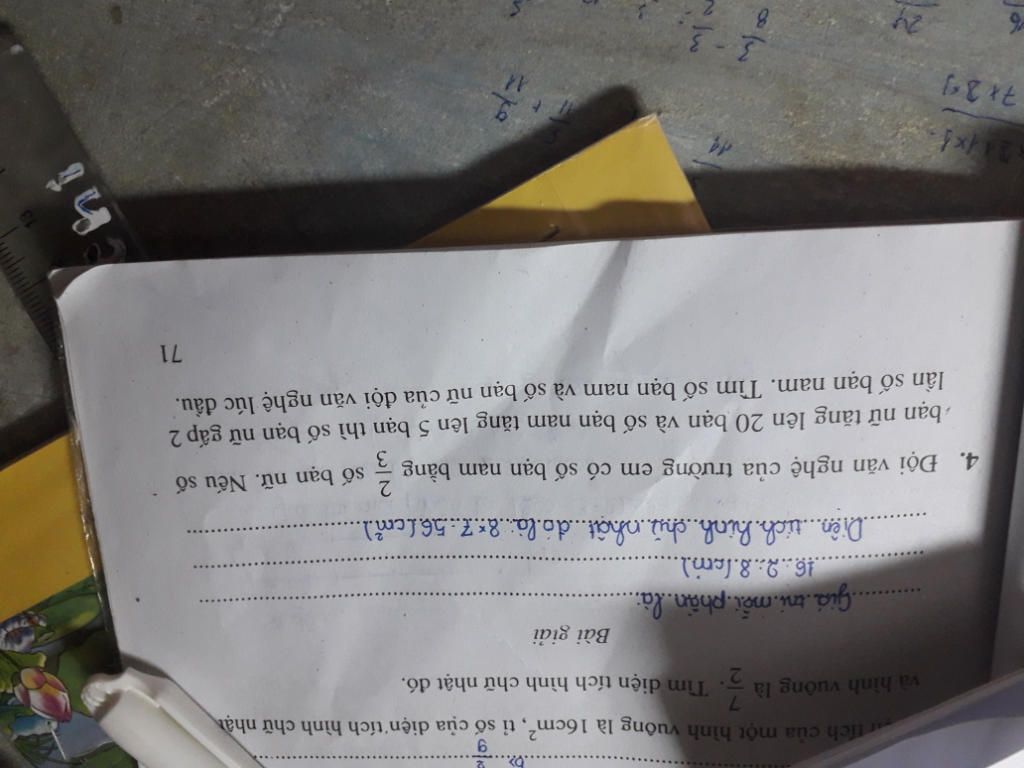 tích của một hình vuông là 16cm², tỉ số của diện tích hình chữ nhật
và hình vuông là 7/2. Tìm diện tích hình chữ nhật đó.
Bài giải
Giá trị mỗi phần là:
16 : 2 = 8 (cm²)
Diện tích hình chữ nhật đó là: 8 × 7 = 56 (cm²)
4. Đội văn nghệ của trường em có số bạn nam bằng 2/3 số bạn nữ. Nếu số
bạn nữ tăng lên 20 bạn và số bạn nam tăng lên 5 bạn thì số bạn nữ gấp 2
lần số bạn nam. Tìm số bạn nam và số bạn nữ của đội văn nghệ lúc đầu.
71
13